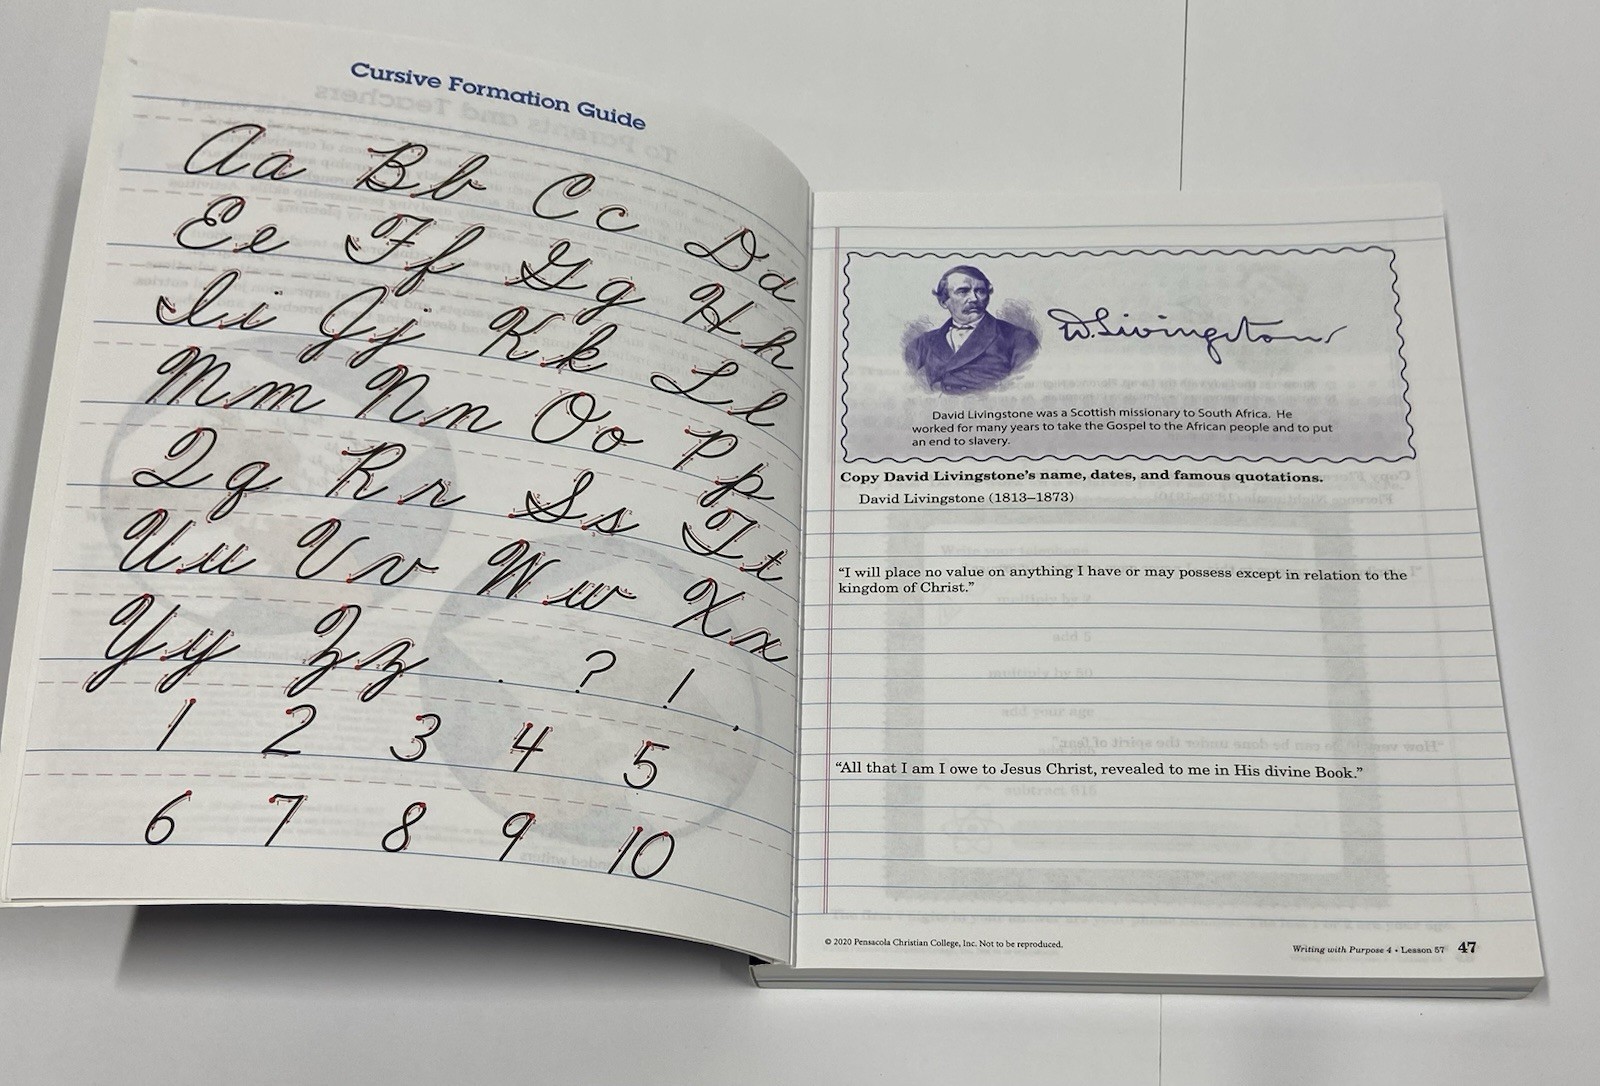 Cursive Formation Guide
Aa Bb Cc Dd
Ee Ff Gg Hh
Ii Jj Kk Ll
Mm Nn Oo Pp
Qq Rr Ss Tt
Uu Vv Ww Xx
Yy Zz . ? ! ,
1 2 3 4 5
6 7 8 9 10
D. Livingstone
David Livingstone was a Scottish missionary to South Africa. He
worked for many years to take the Gospel to the African people and to put
an end to slavery.
Copy David Livingstone's name, dates, and famous quotations.
David Livingstone (1813–1873)
“I will place no value on anything I have or may possess except in relation to the
kingdom of Christ.”
“All that I am I owe to Jesus Christ, revealed to me in His divine Book.”
© 2020 Pensacola Christian College, Inc. Not to be reproduced.
Writing with Purpose 4 • Lesson 57 47